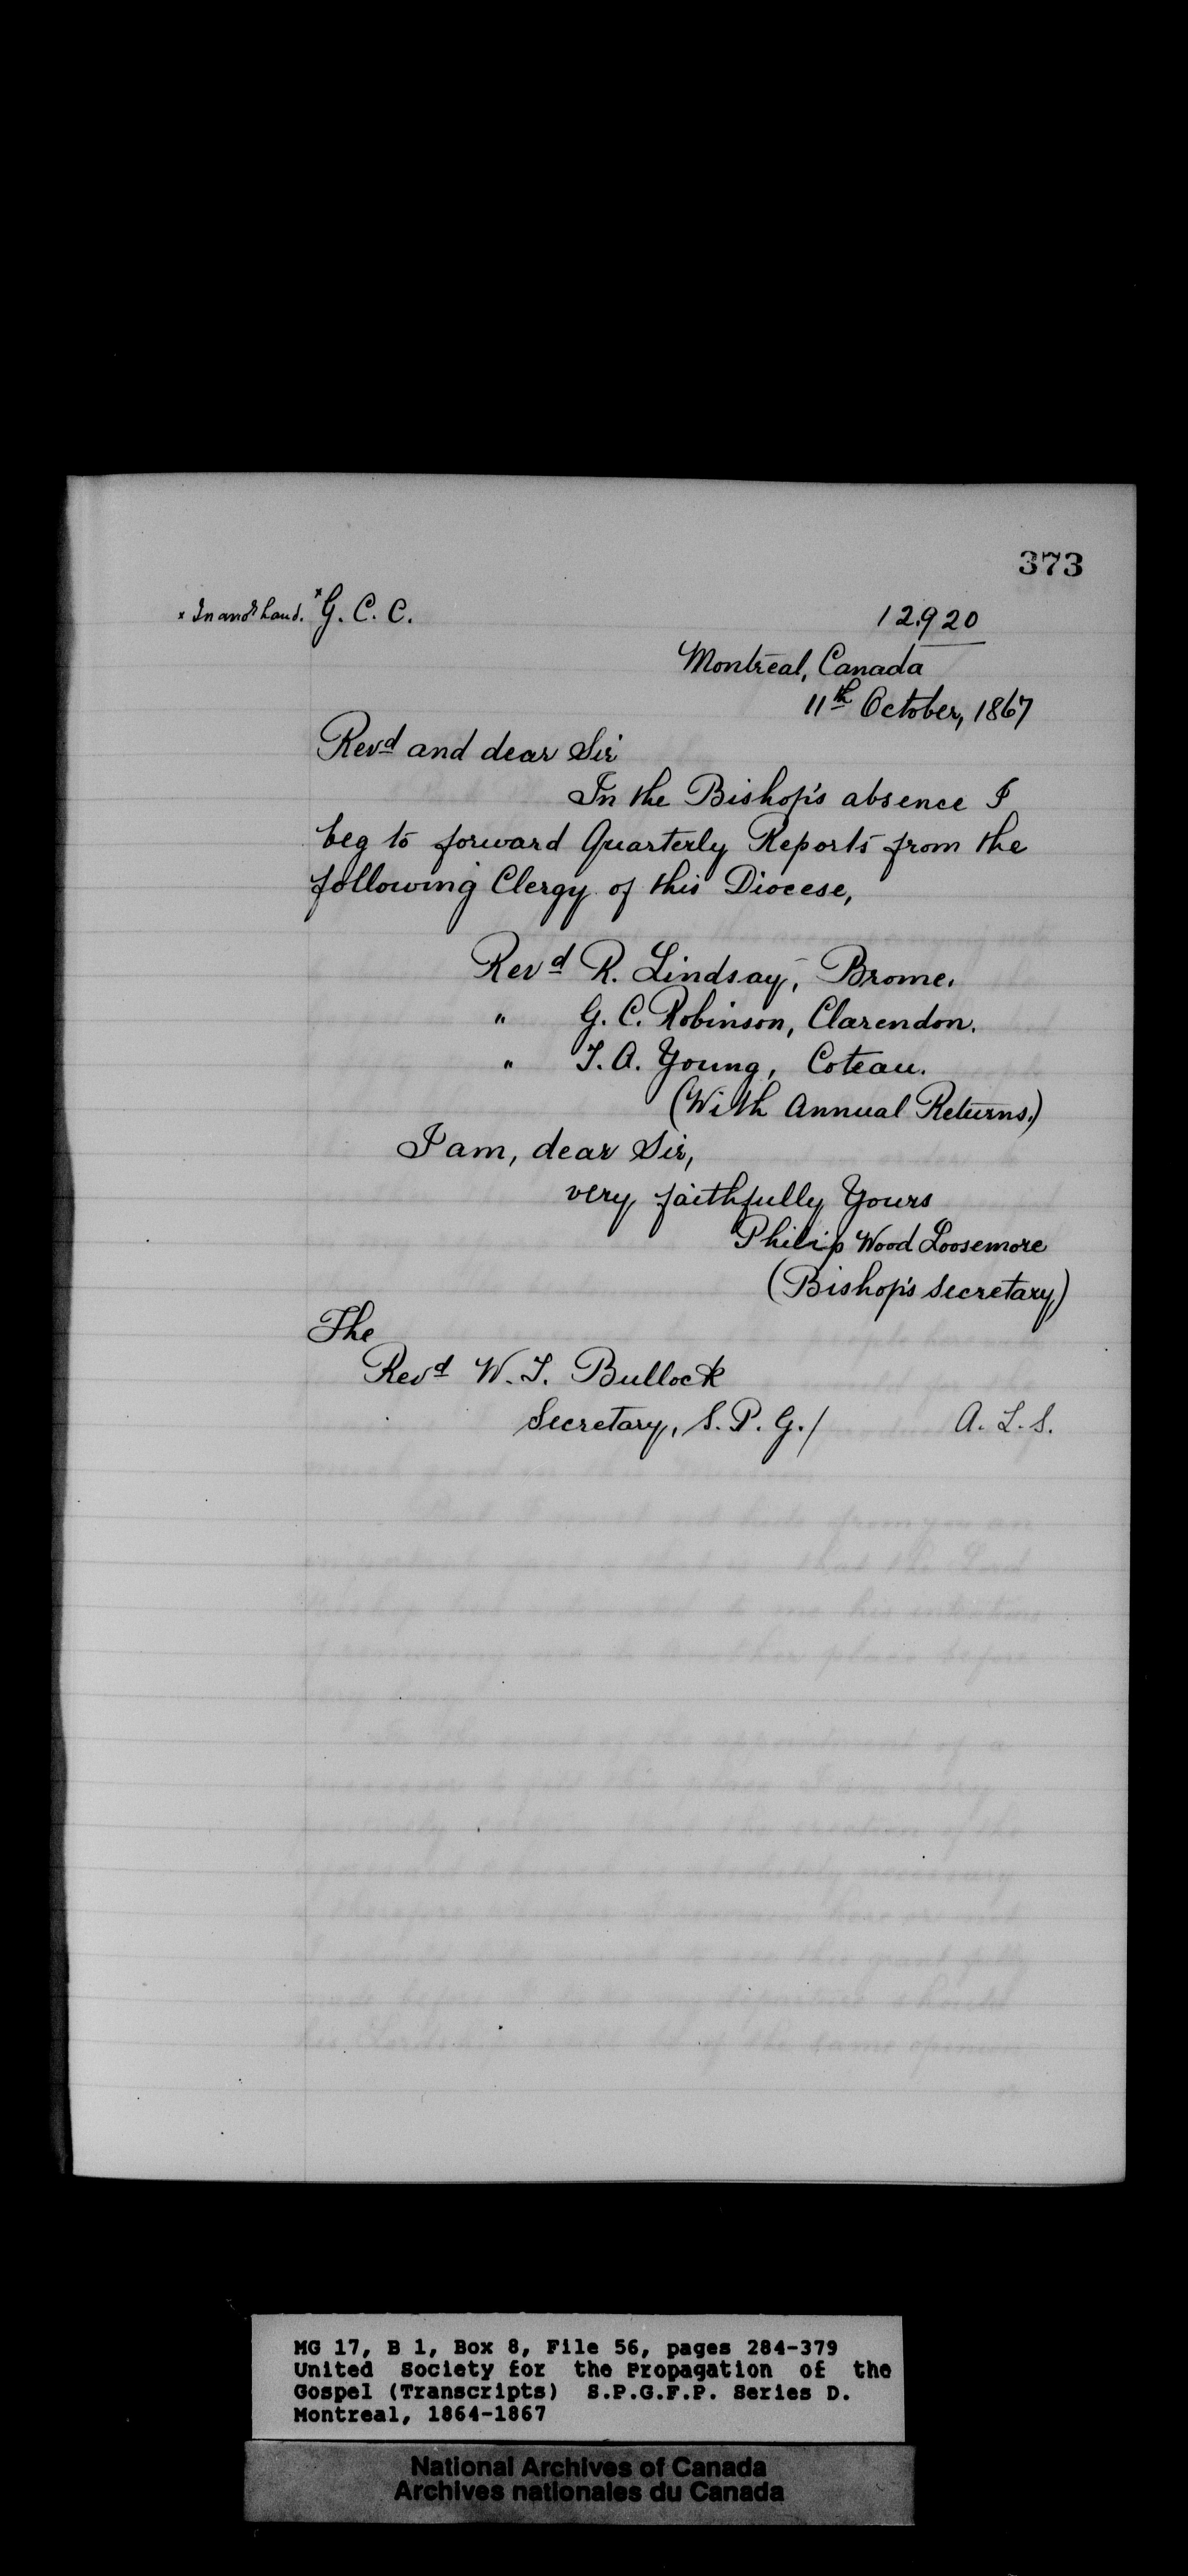 373
x In anor hand. x G. C. C.
12.920
Montreal, Canada
11th October, 1867
Revd and dear Sir
In the Bishop's absence I
beg to forward Quarterly Reports from the
following Clergy of this Diocese,
Revd R. Lindsay, Brome.
" G. C. Robinson, Clarendon.
" T. A. Young, Coteau.
(With Annual Returns.)
I am, dear Sir,
very faithfully Yours
Philip Wood Loosemore
(Bishop's Secretary)
The
Revd W. T. Bullock
Secretary, S. P. G./ A. L. S.
MG 17, B 1, Box 8, File 56, pages 284-379
United Society for the Propagation of the
Gospel (Transcripts) S.P.G.F.P. Series D.
Montreal, 1864-1867
National Archives of Canada
Archives nationales du Canada